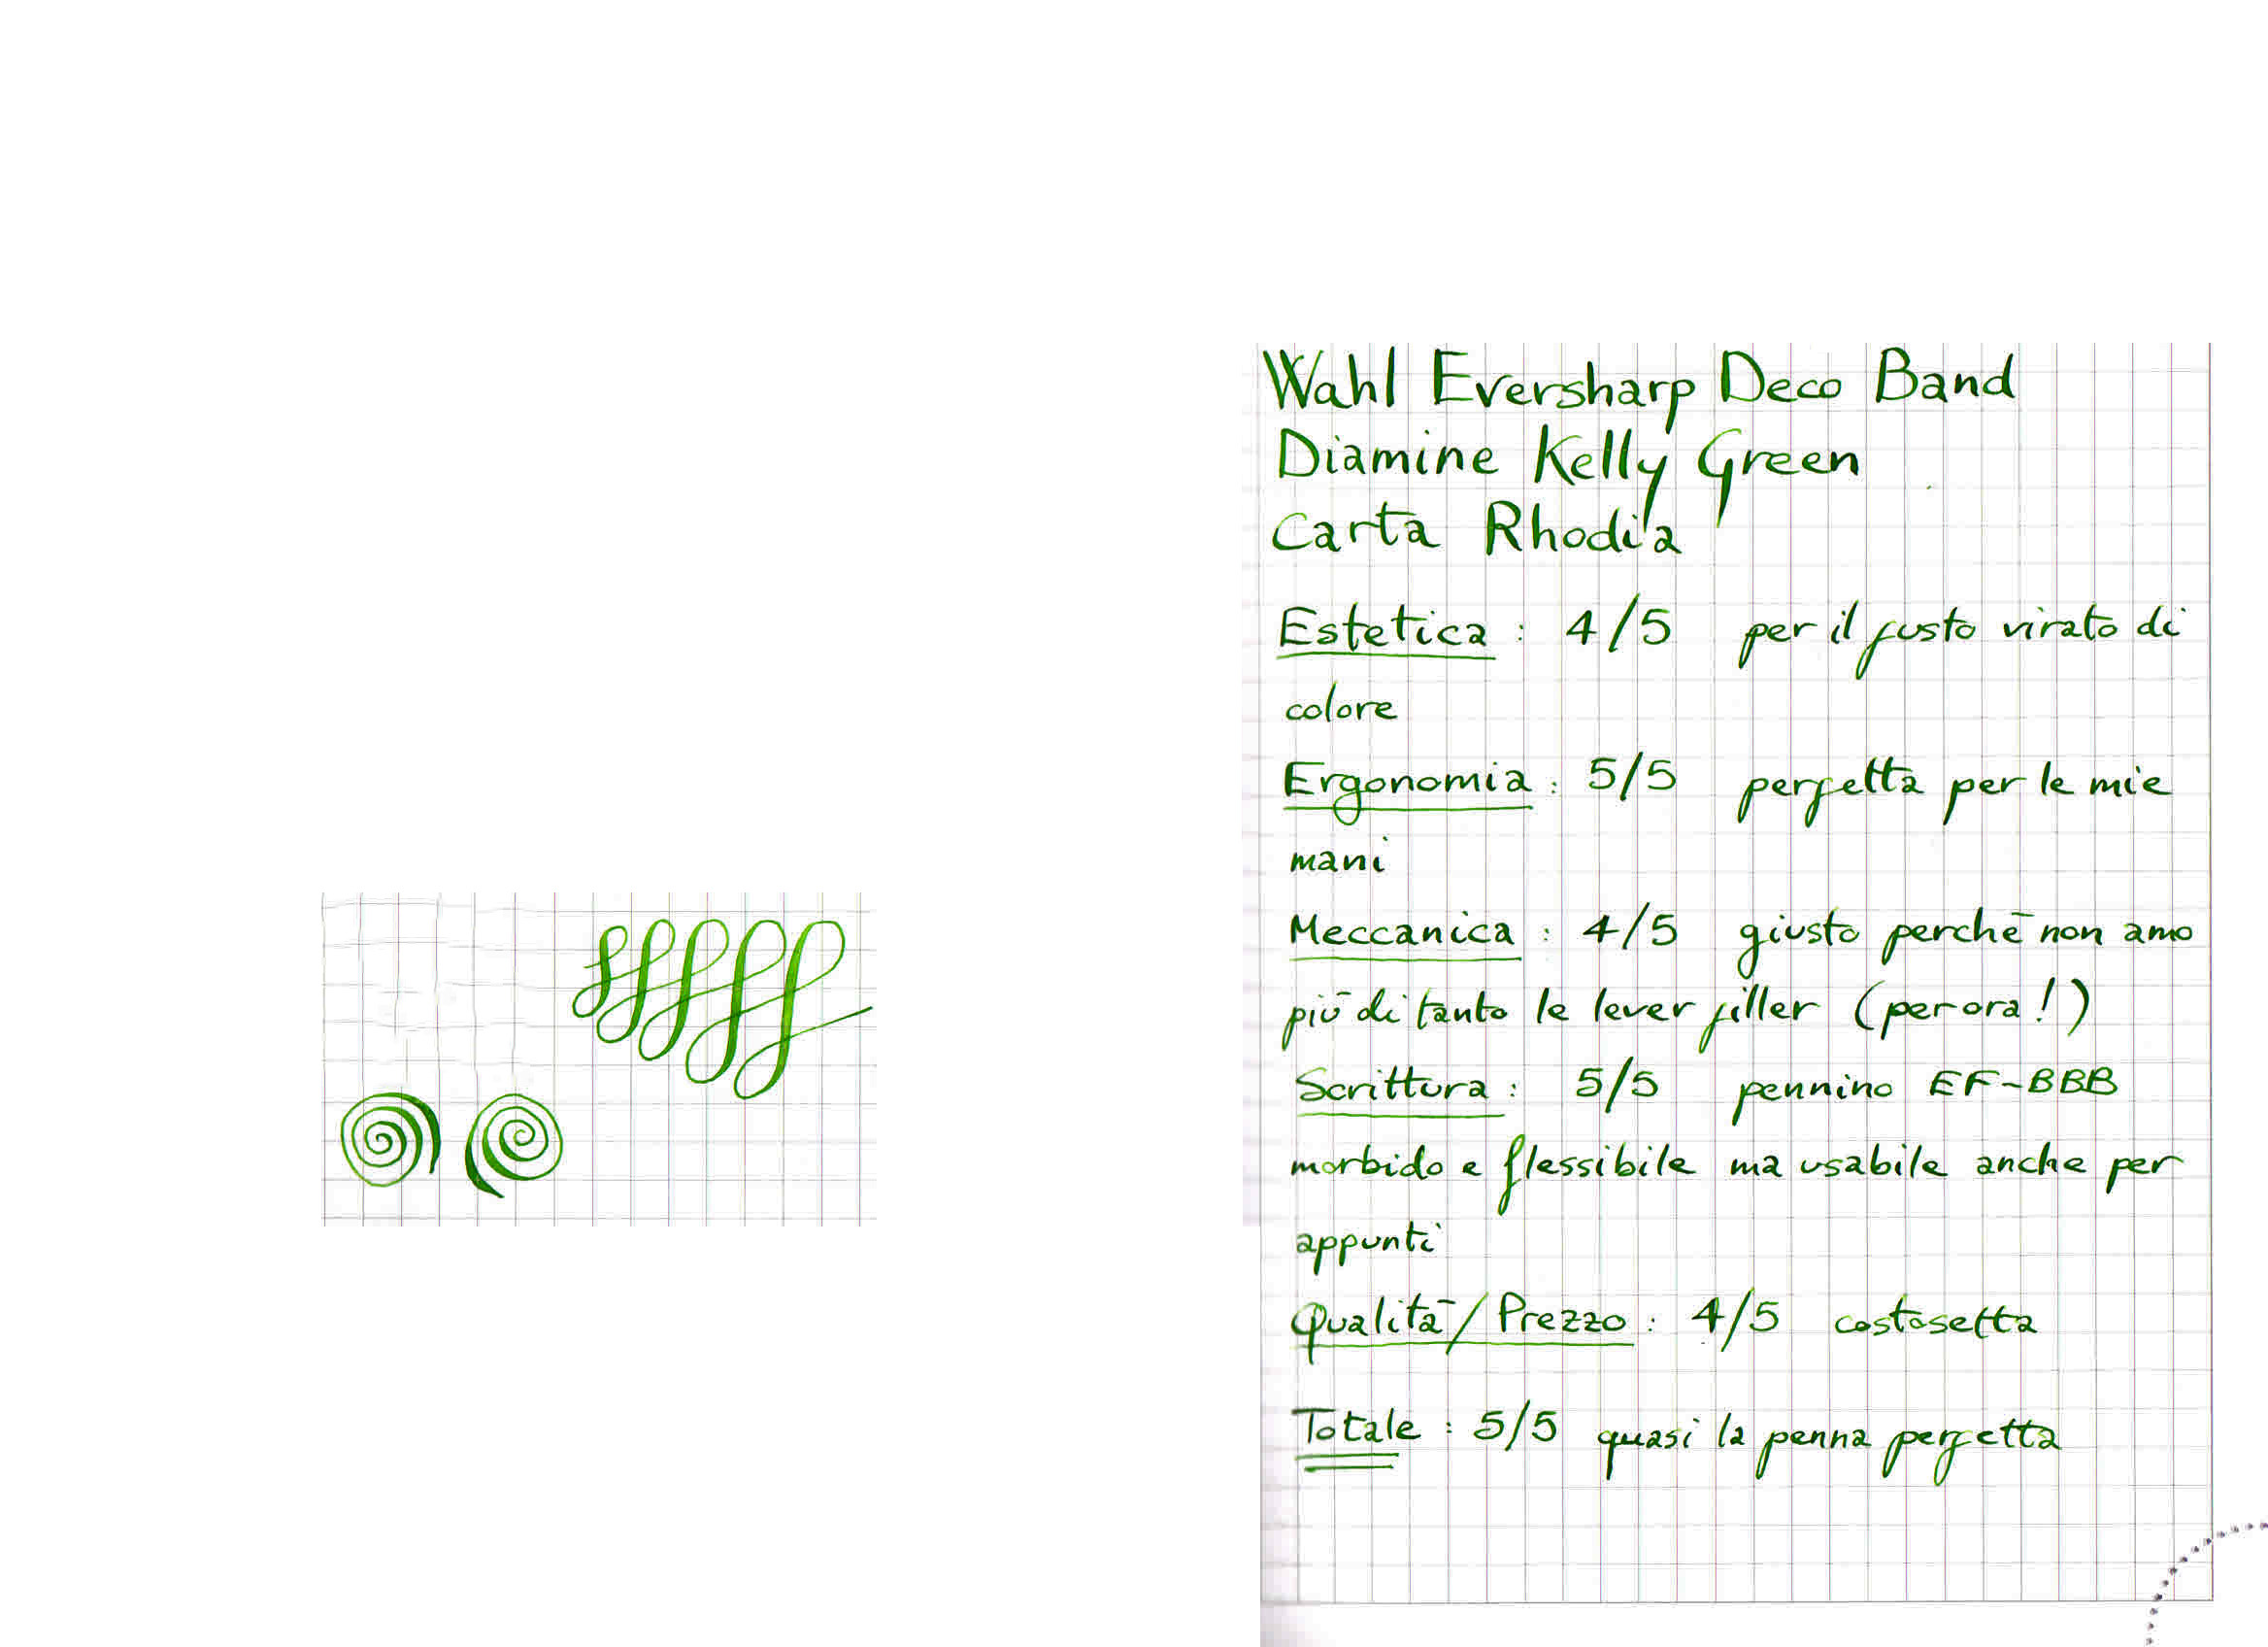 Wahl Eversharp Deco Band
Diamine Kelly Green
Carta Rhodia
Estetica : 4/5 per il fusto virato di
colore
Ergonomia : 5/5 perfetta per le mie
mani
Meccanica : 4/5 giusto perchē non amo
piū di tanto le lever filler (per ora!)
Scrittura : 5/5 pennino EF-BBB
morbido e flessibile ma usabile anche per
appunti
Qualitā/Prezzo : 4/5 costosetta
Totale : 5/5 quasi la penna perfetta